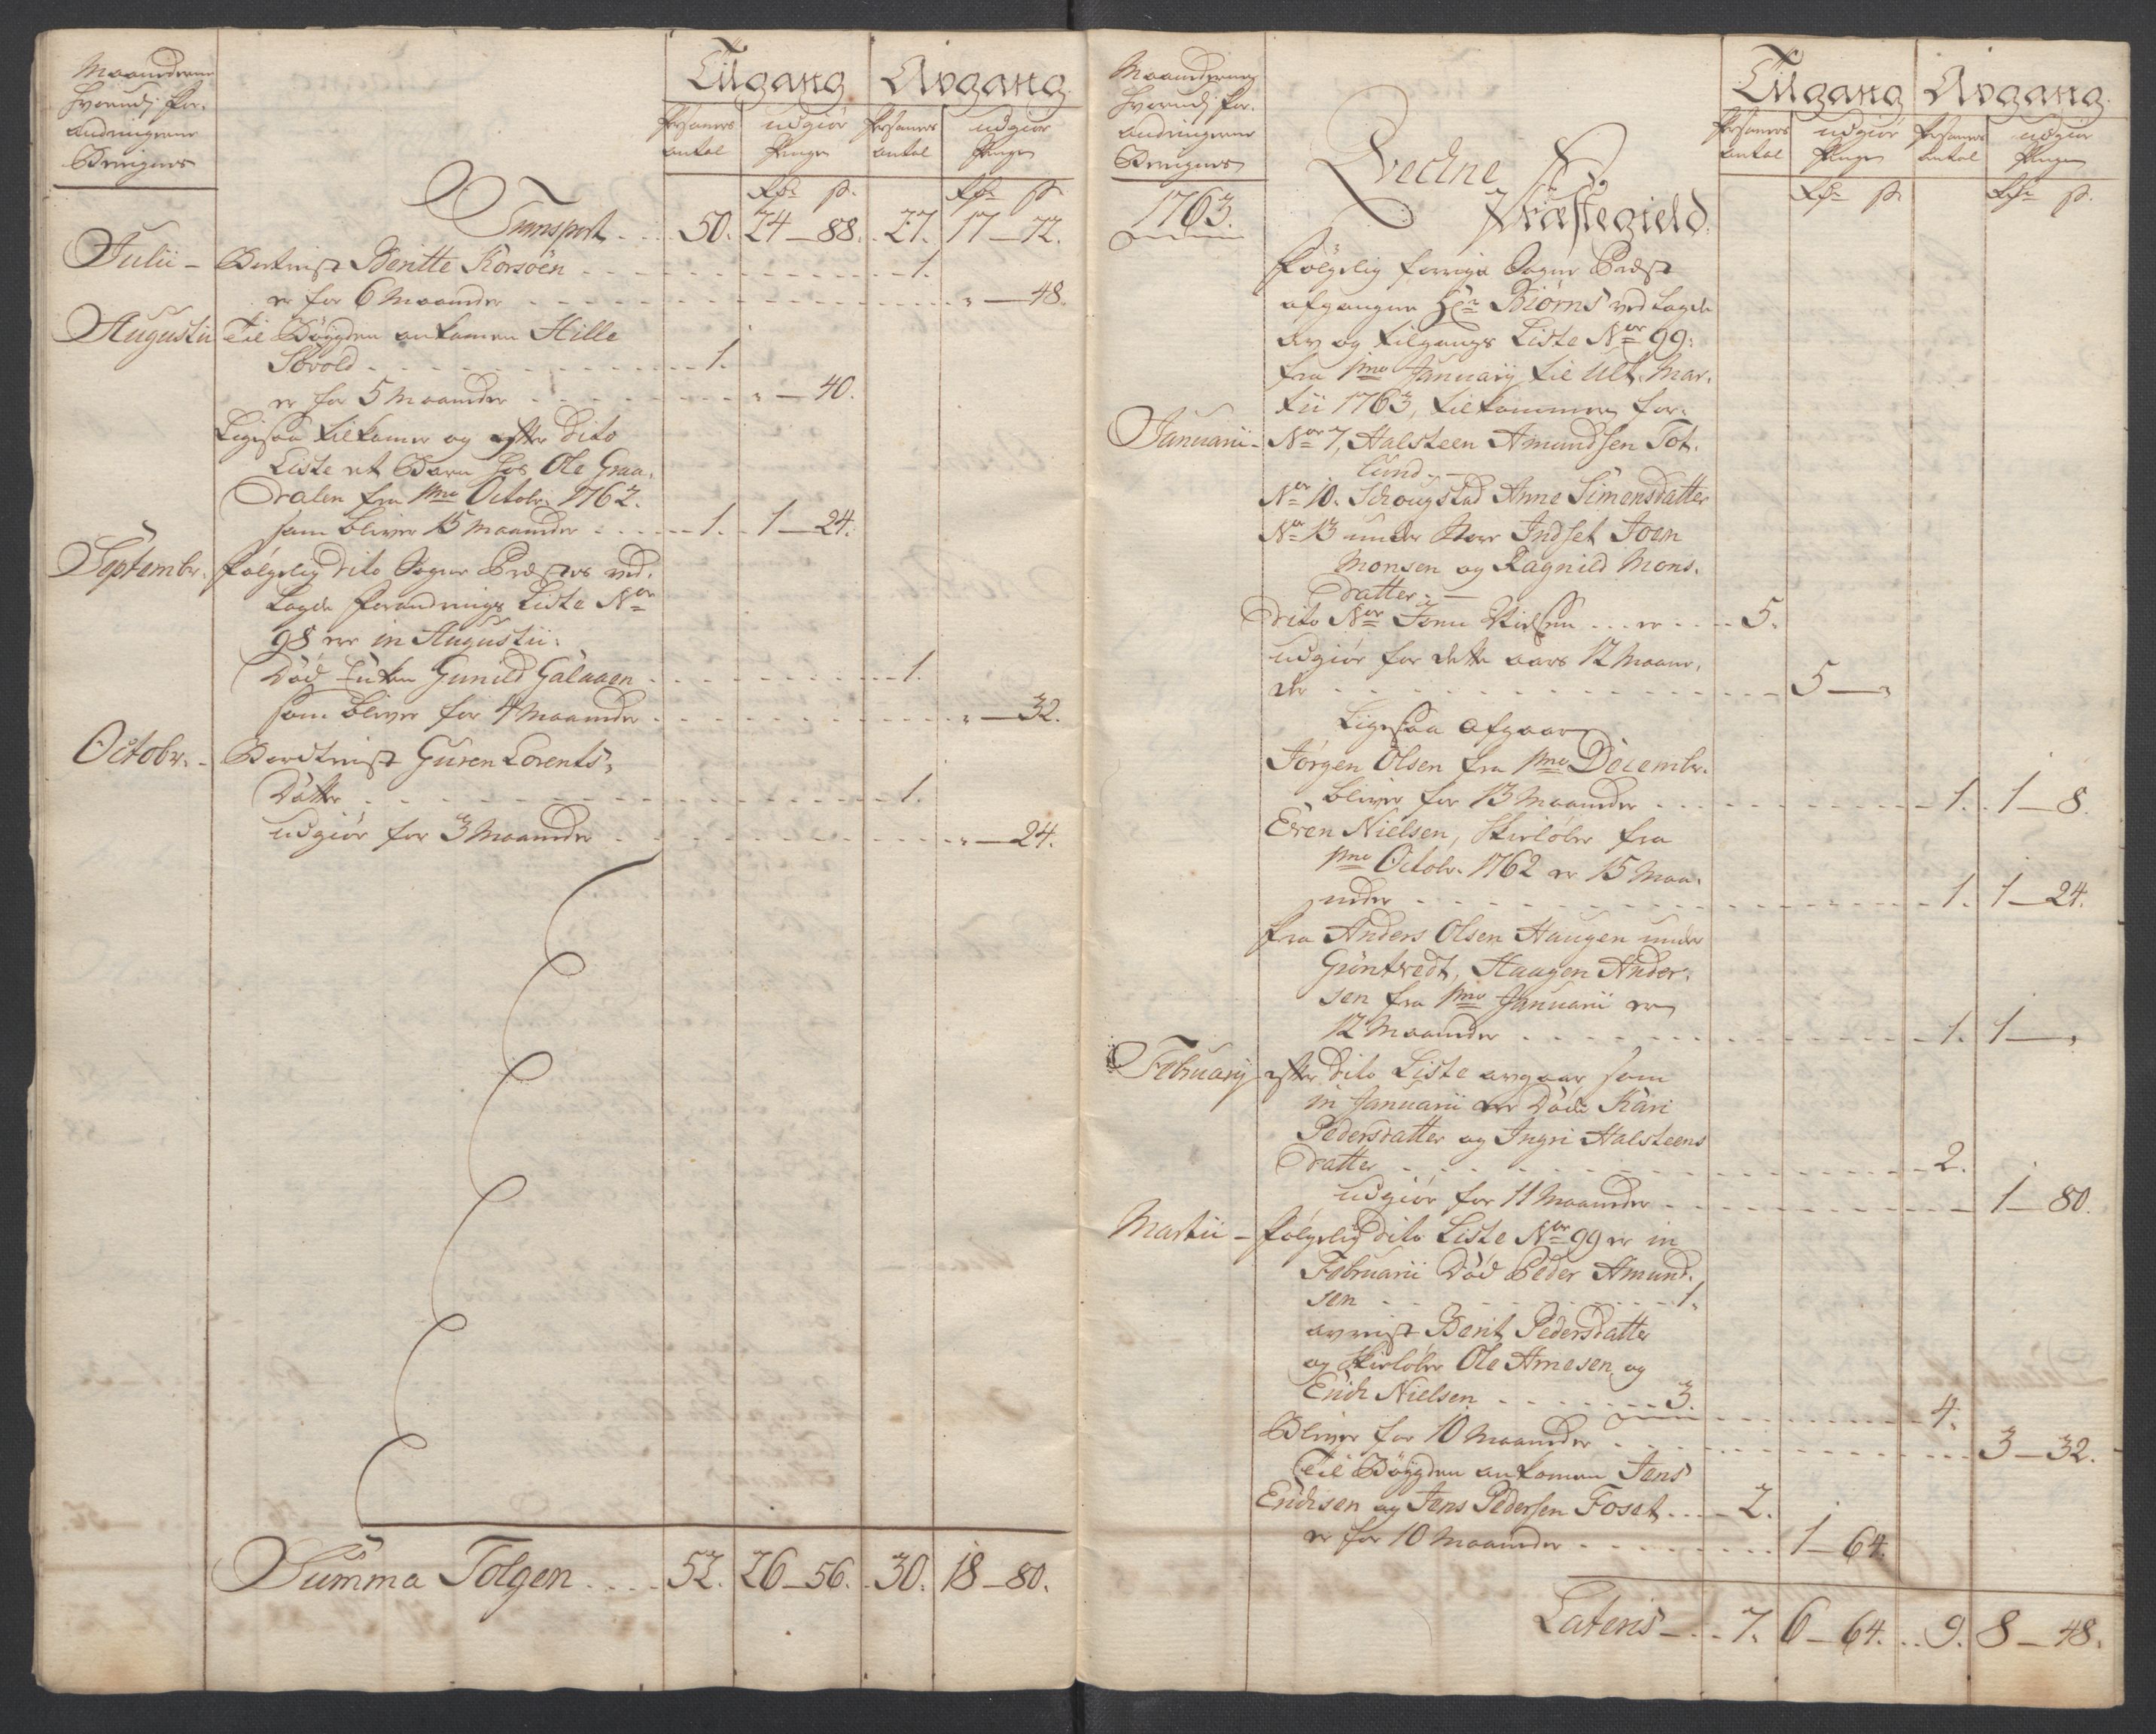 Maanederne
hvorudj for-
andringerne
Tilgang Avgang
Persohners antal udgiør Penge Persohners antal udgiør Penge
Rdr ß. Rdr ß
Transport - 50. 24 – 88. 27. 17 – 72.
Julii – Bortreist Beritte Korsøen - - - 1.
er for 6 Maaneder - - - „ – 48.
Augustii Til Bøygden ankomen Hille
Sørold - - - 1.
er for 5 Maaneder - - - „ – 40.
Ligesaa tilkomer og efter dito
Liste et Barn hos Ole Graa-
dalen fra 1mo Octobr. 1762.
som bliver 15 Maaneder - - - 1. 1 – 24.
Septembr. følgelig dito Sogne Præstes ved-
lagde forandrings Liste Nor
98 er in Augustii.
Død Enken Gunild Galaaen - - - 1.
som bliver for 4 Maaneder - - - „ – 32.
Octobr. - Bortreist Guren Lorents-
Datter - - - 1.
udgiør for 3 Maaneder - - - „ – 24.
Summa Tolgen - - - 52. 26 – 56. 30. 18 – 80.
Maanederne
hvorudj for-
andringerne
Tilgang Avgang.
Persohners antal udgiør Penge Persohners antal udgiør Penge
Rdr ß Rdr ß.
1763.
Qvedne
Præstegield.
følgelig forrige Sogne Præst
afgangne Hr. Biørns vedlagde
Av og tilgangs Liste Nor 99.
fra 1mo Januarij til Ult. Mar-
tii 1763, tilkommer for-
Januarii - Nor 7, Halsteen Amundsen Tot-
lund. –
Nor 10. Schougstad Anne Simensdatter
Nor 13 under Store Indset Joen
Monsen og Ragnild Mons-
datter. –
dito Nor Joen Nielsen - - er - - - 5.
udgiør for dette aars 12 Maane-
der - - - 5 – „
Ligesaa afgaar
Jørgen Olsen fra 1mo Decembr.
bliver for 13 Maaneder - - - 1. 1 – 8.
Even Nielsen, Skieløber fra
1mo Octobr. 1762 er 15 Maa-
neder - - - 1. 1 – 24.
fra Anders Olsen Haugen under
Grøntvedt, Haagen Ander-
sen fra 1mo Januarii er
12 Maaneder - - - 1. 1 – „
Februarij efter dito Liste avgaar som
in Januarii er Døde Kari
Pedersdatter og Ingri Halsteens
datter - - - 2.
udgiør for 11 Maaneder - - - 1 – 80.
Martii – følgelig dito Liste Nor 99 er in
Februarii Død Peder Amund-
sen - - - 1.
avreist Berit Pedersdatter
og Skieløber Ole Arnesen og
Erich Nielsen - - - 3.
- - - 4.
Bliver for 10 Maaneder - - - 3 – 32.
Til Bøygden ankomen Jens
Erichsen og Jens Pedersen Foset - - - 2.
er for 10 Maaneder - - - 1 – 64.
Lateris – - - 7. 6 – 64. - - 9. 8 – 48.